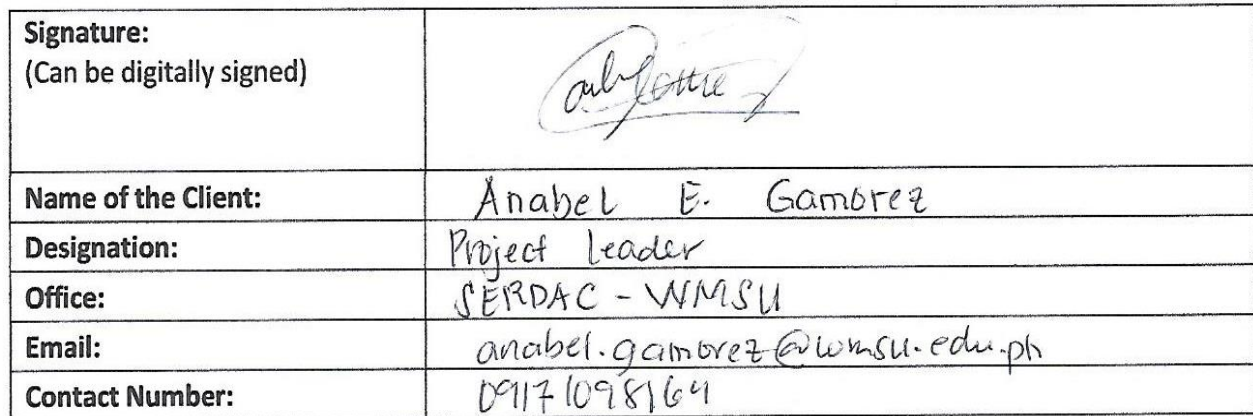 Signature:
(Can be digitally signed)
Name of the Client: Anabel E. Gamorez
Designation: Project Leader
Office: SERDAC - WMSU
Email: anabel.gamorez@wmsu.edu.ph
Contact Number: 09171098164